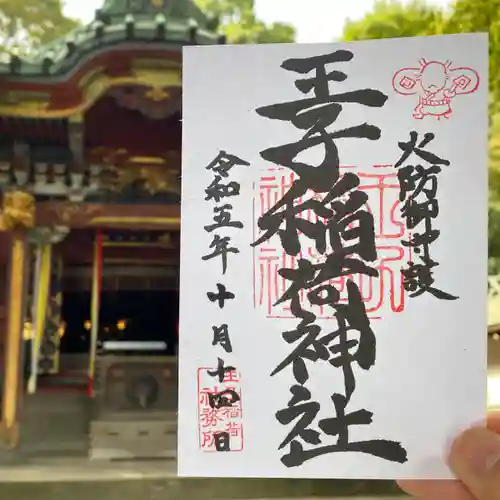 火防御守護
王子稲荷神社
令和五年十月十四日
王子稲荷
神社務所